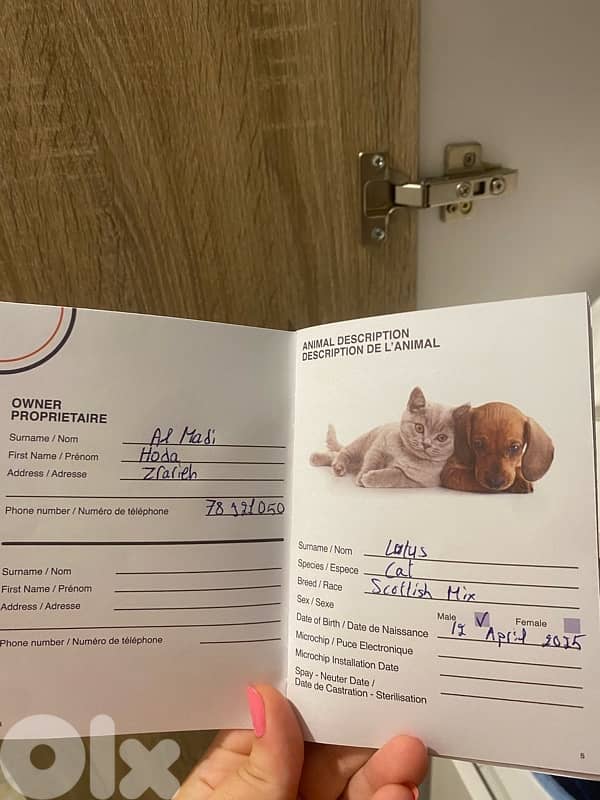 OWNER
PROPRIETAIRE
Surname / Nom Al Madi
First Name / Prénom Hoda
Address / Adresse Zrarieh
Phone number / Numéro de téléphone 78 921050
Surname / Nom
First Name / Prénom
Address / Adresse
Phone number / Numéro de téléphone
ANIMAL DESCRIPTION
DESCRIPTION DE L'ANIMAL
Surname / Nom Lotus
Species / Espece Cat
Breed / Race Scottish Mix
Sex / Sexe Male Female
Date of Birth / Date de Naissance 17 April 2025
Microchip / Puce Electronique
Microchip Installation Date
Spay - Neuter Date /
Date de Castration - Sterilisation
5
OLX